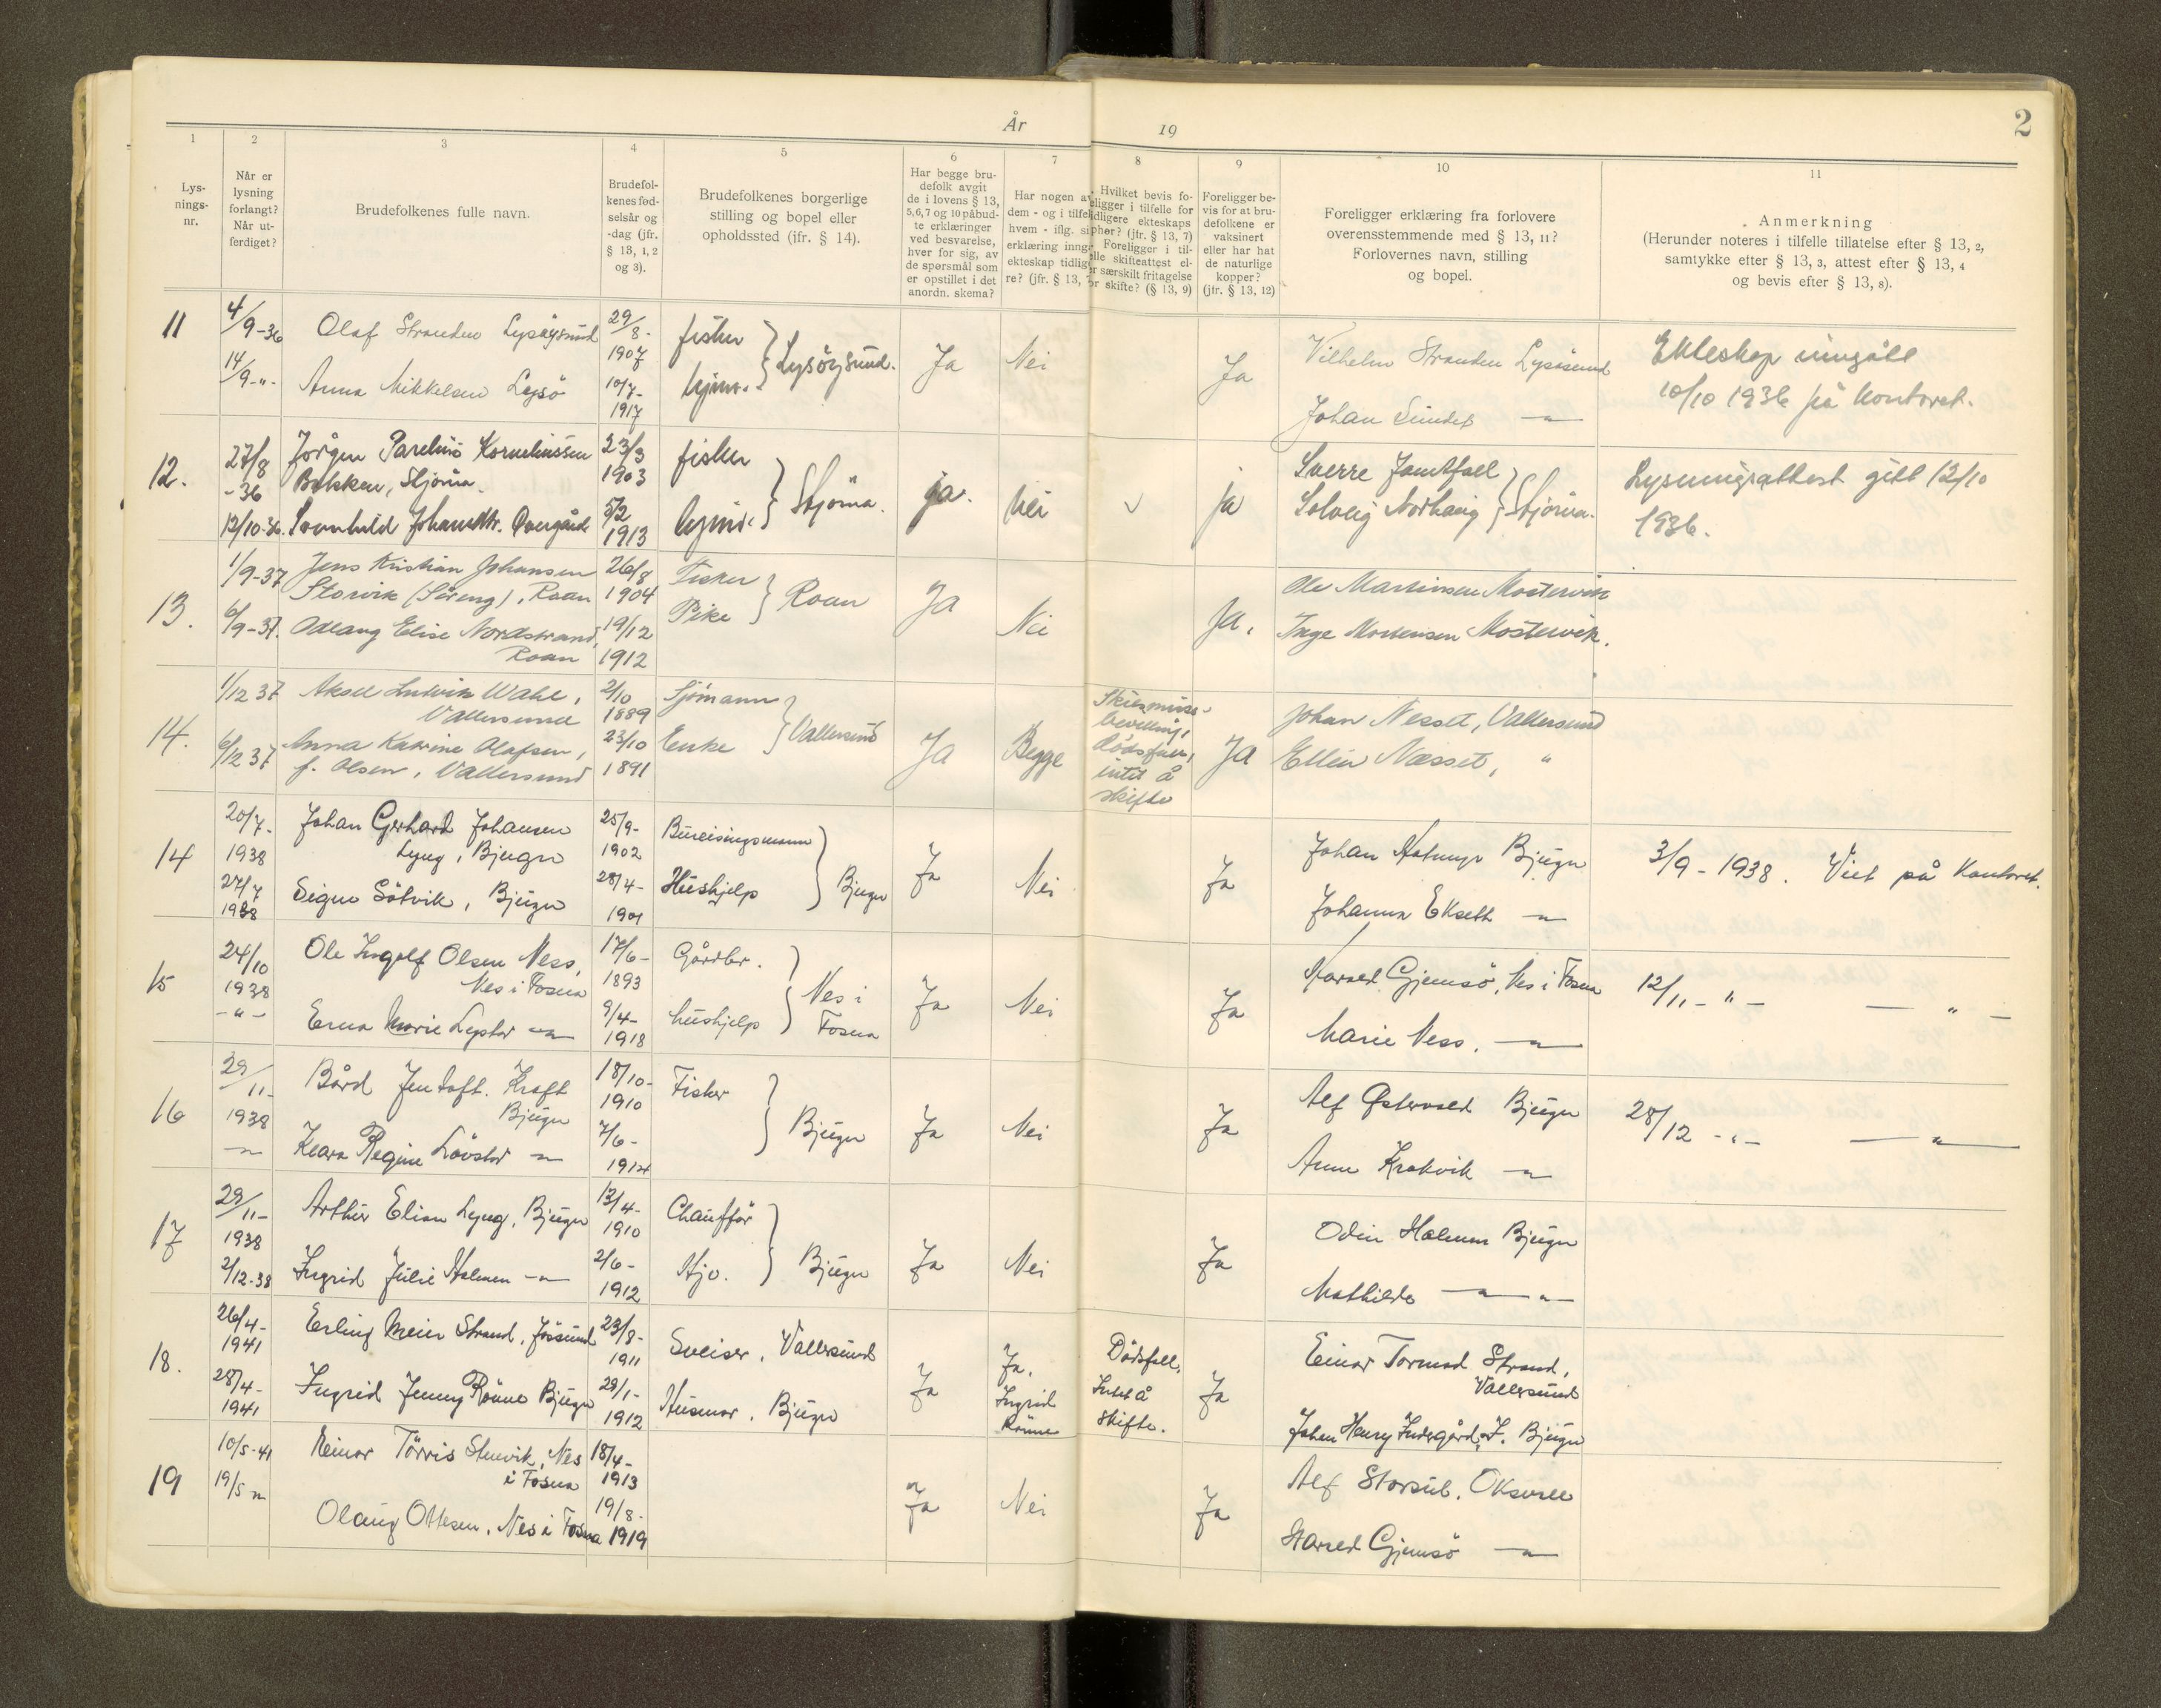 År 19
2
1
2
3
4
5
6
7
8
9
10
11
Lys-
nings-
nr.
Når er
lysning
forlangt?
Når ut-
ferdiget?
Brudefolkenes fulle navn.
Brudefol-
kenes fød-
selsår og
-dag (jfr.
§ 13, 1, 2
og 3).
Brudefolkenes borgerlige
stilling og bopel eller
opholdssted (jfr. § 14).
Har begge bru-
defolk avgit
de i lovens § 13,
5, 6, 7 og 10 påbud-
te erklæringer
ved besvarelse,
hver for sig, av
de spørsmål som
er opstillet i det
anordn. skema?
Har nogen av
dem - og i tilfelle
hvem - iflg. si
erklæring inng
ekteskap tidlig
re? (jfr. § 13, 7
Hvilket bevis fo-
eligger i tilfelle for
idligere ekteskaps
ophør? (jfr. § 13, 7)
Foreligger i til-
elle skifteattest el-
er særskilt fritagelse
or skifte? (§ 13, 9)
Foreligger be-
vis for at bru-
defolkene er
vaksinert
eller har hat
de naturlige
kopper?
(jfr. § 13, 12)
Foreligger erklæring fra forlovere
overensstemmende med § 13, 11?
Forlovernes navn, stilling
og bopel.
Anmerkning
(Herunder noteres i tilfelle tillatelse efter § 13, 2,
samtykke efter § 13, 3, attest efter § 13, 4
og bevis efter § 13, 8).
11
4/9-36
14/9-"-
Olaf Stranden Lysøysund
Anna Mikkelsen Lysö
29/8-
1907
10/7-
1917
fisker
hjmv.
Lysöysund.
Ja
Nei
Ja
Vilhelm Stranden Lysøsund
Johan Sundet -"-
Ekteskap inngått
10/10 1936 på kontoret.
12.
27/8
-36
12/10-36.
Jörgen Parelius Korneliussen
Bakken, Stjörna.
Johansdtr. Overgård
23/3
1903
5/2
1913
fisker
hjmv.
Stjörna.
ja.
nei
v
ja
Sverre Jamtfall
Solveig Norhaug
Stjörna.
Lysningsattest gitt 12/10
1936.
13.
1/9-37
6/9-37.
Jens Kristian Johansen
Storvik (Söreng), Roan
Odlaug Elise Nordstrand,
Roan
26/8
1904
19/12
1912
Fisker
Pike
Roan
Ja
Nei
Ja.
Ole Martinsen Mostervik
Inge Mortensen Mostervik.
14.
1/12 37
6/12 37
Aksel Ludvik Wahl,
Vallersund
Anna Katrine Olafsen,
f. Olsen, Vallersund
2/10
1889
23/10
1891
Sjömann
Enke
Vallersund
Ja
Begge
Skilsmisse-
bevilling,
dödsfall,
intet å
skifte
Ja
Johan Nesset, Vallersund
Ellen Næsset, "
14
20/7-
1938
27/7
1938
Johan Gerhard Johansen
Lyng, Bjugn
Signe Sötvik, Bjugn
25/9-
1902
28/4-
1901
Bureisingsmann
Hushjelp
Bjugn
Ja
Nei
Ja
Johan Bjugn
Johanna Ekseth -"-
3/9 - 1938. Viet på Kontoret.
15
24/10
1938
-"-
Ole Ingolf Olsen Ness,
Nes i Fosna
Erna Marie -"-
17/6-
1893
9/4-
1918
Gårdbr.
hushjelp
Nes i
Fosna
Ja
Nei
Ja
Harald Gjemsö, Nes i Fosna
Marie Ness. -"-
12/11- "- — " —
16
29/11-
1938
-"-
Bård Jentoft. Kraft
Bjugn
Klara Regine Lövstad -"-
18/10-
1910
7/6-
1914
Fisker
Bjugn
Ja
Nei
Ja
Alf Østervold Bjugn
Anne Krokvik -"-
28/12 -"- — " —
17
29/11-
1938
2/12-38
Arthur Elian Lyng, Bjugn
Ingrid Julie Holmen -"-
13/4-
1910
2/6-
1912
Chaufför
Hjv.
Bjugn
Ja
Nei
Ja
Odin Holmen Bjugn
Mathilde -"- -"-
18.
26/4-
1941
28/4-
1941
Erling Meier Strand, Jössund
Ingrid Jenny Rönne Bjugn
23/8-
1911
29/1-
1912
Sveiser, Vallersund
Husmor, Bjugn
Ja
Ja.
Ingrid
Rönne
Dödsfall.
Intet å
skifte.
Ja
Einar Tormod Strand,
Vallersund
Johan Henry Indergård, Bjugn
19
10/5-41
19/5 "
Reinar Törris Stenvik, Nes
i Fosna
Olaug Ottesen, Nes i Fosna
18/4-
1913
19/8-
1919
Ja
Nei
Ja
Alf Storsul, Oksvoll
Harald Gjemsö -"-